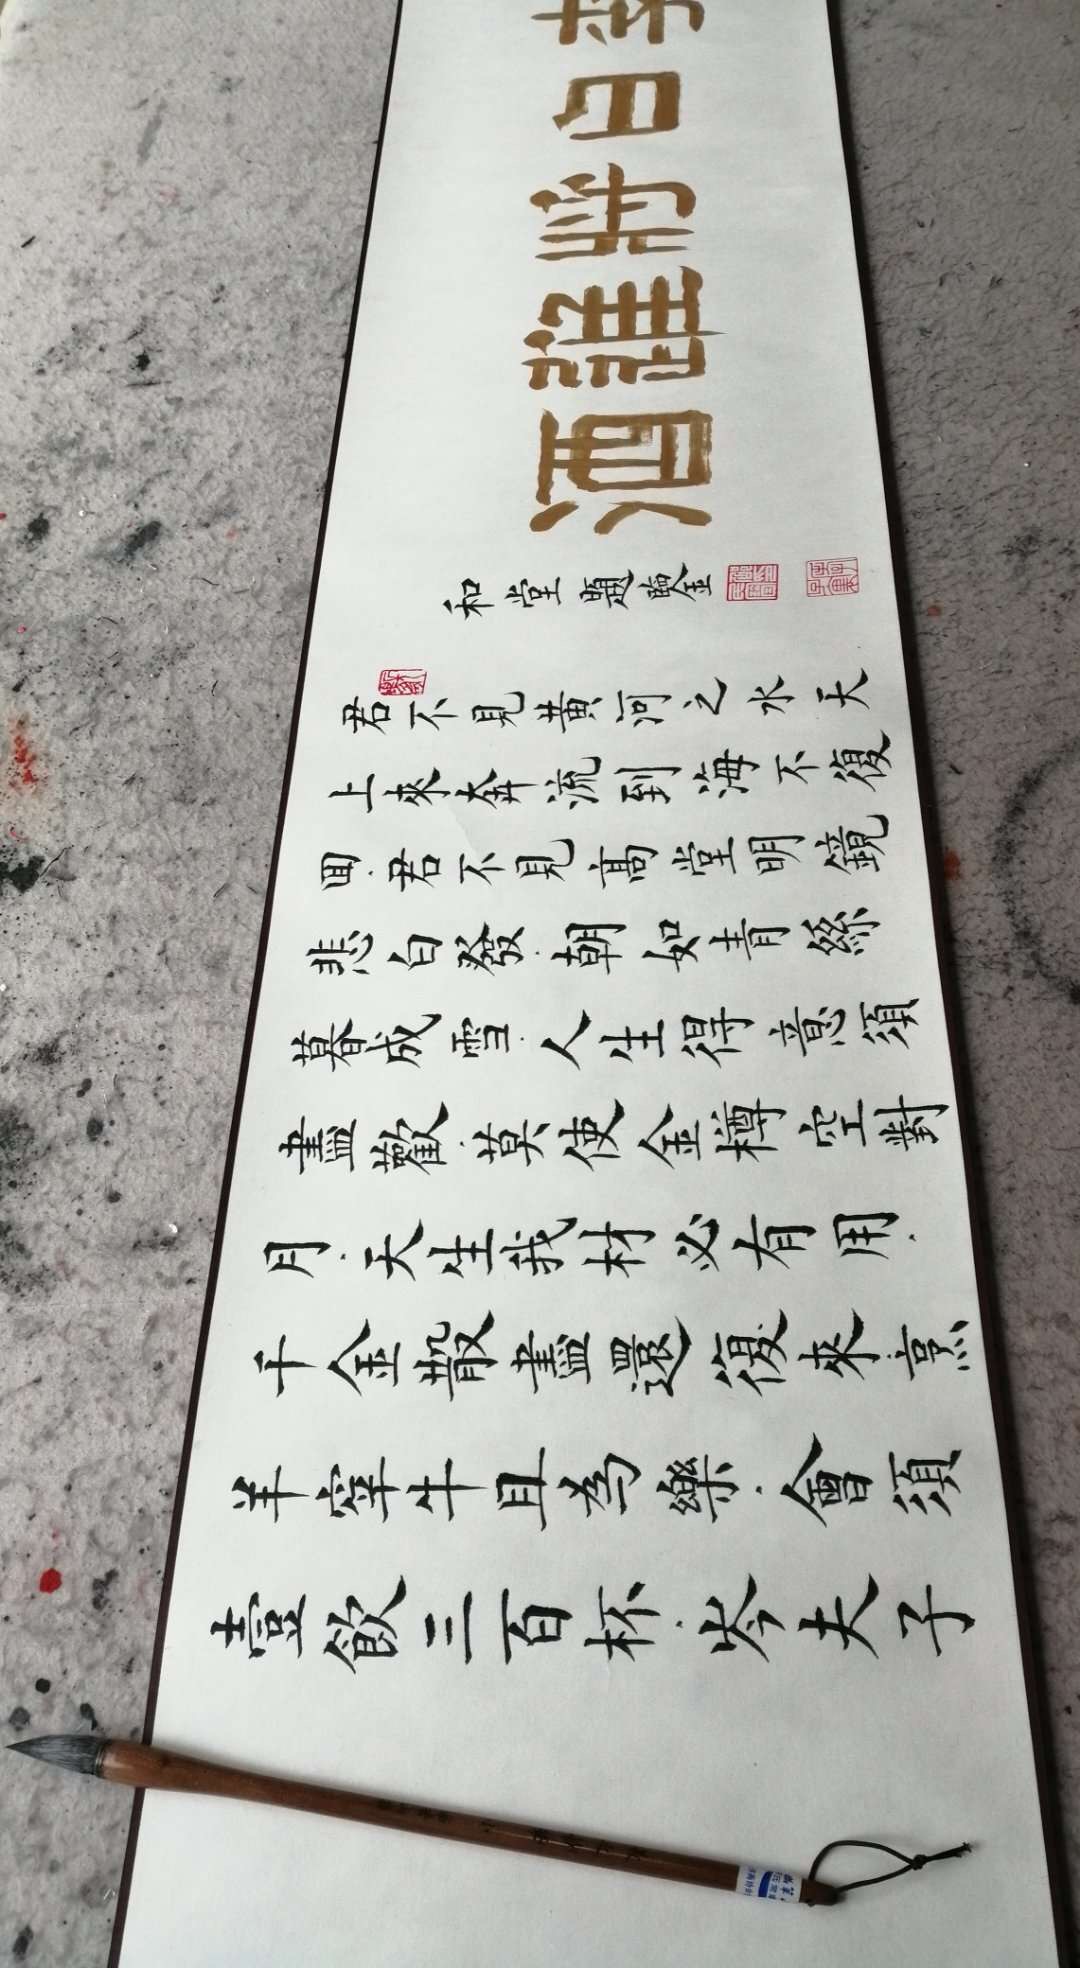 白將進酒
和堂題鑒
君不見黃河之水天
上來奔流到海不復
回.君不見高堂明鏡
悲白發.朝如青絲
暮成雪.人生得意須
盡歡.莫使金樽空對
月.天生我材必有用.
千金散盡還復來烹
羊宰牛且為樂.會須
壹飲三百杯.岑夫子